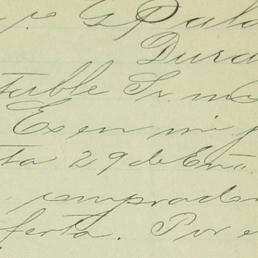 G Pala
Dura
table Sr. m
Es en mi p
ta 29 de En
comprade
ferta. Por e